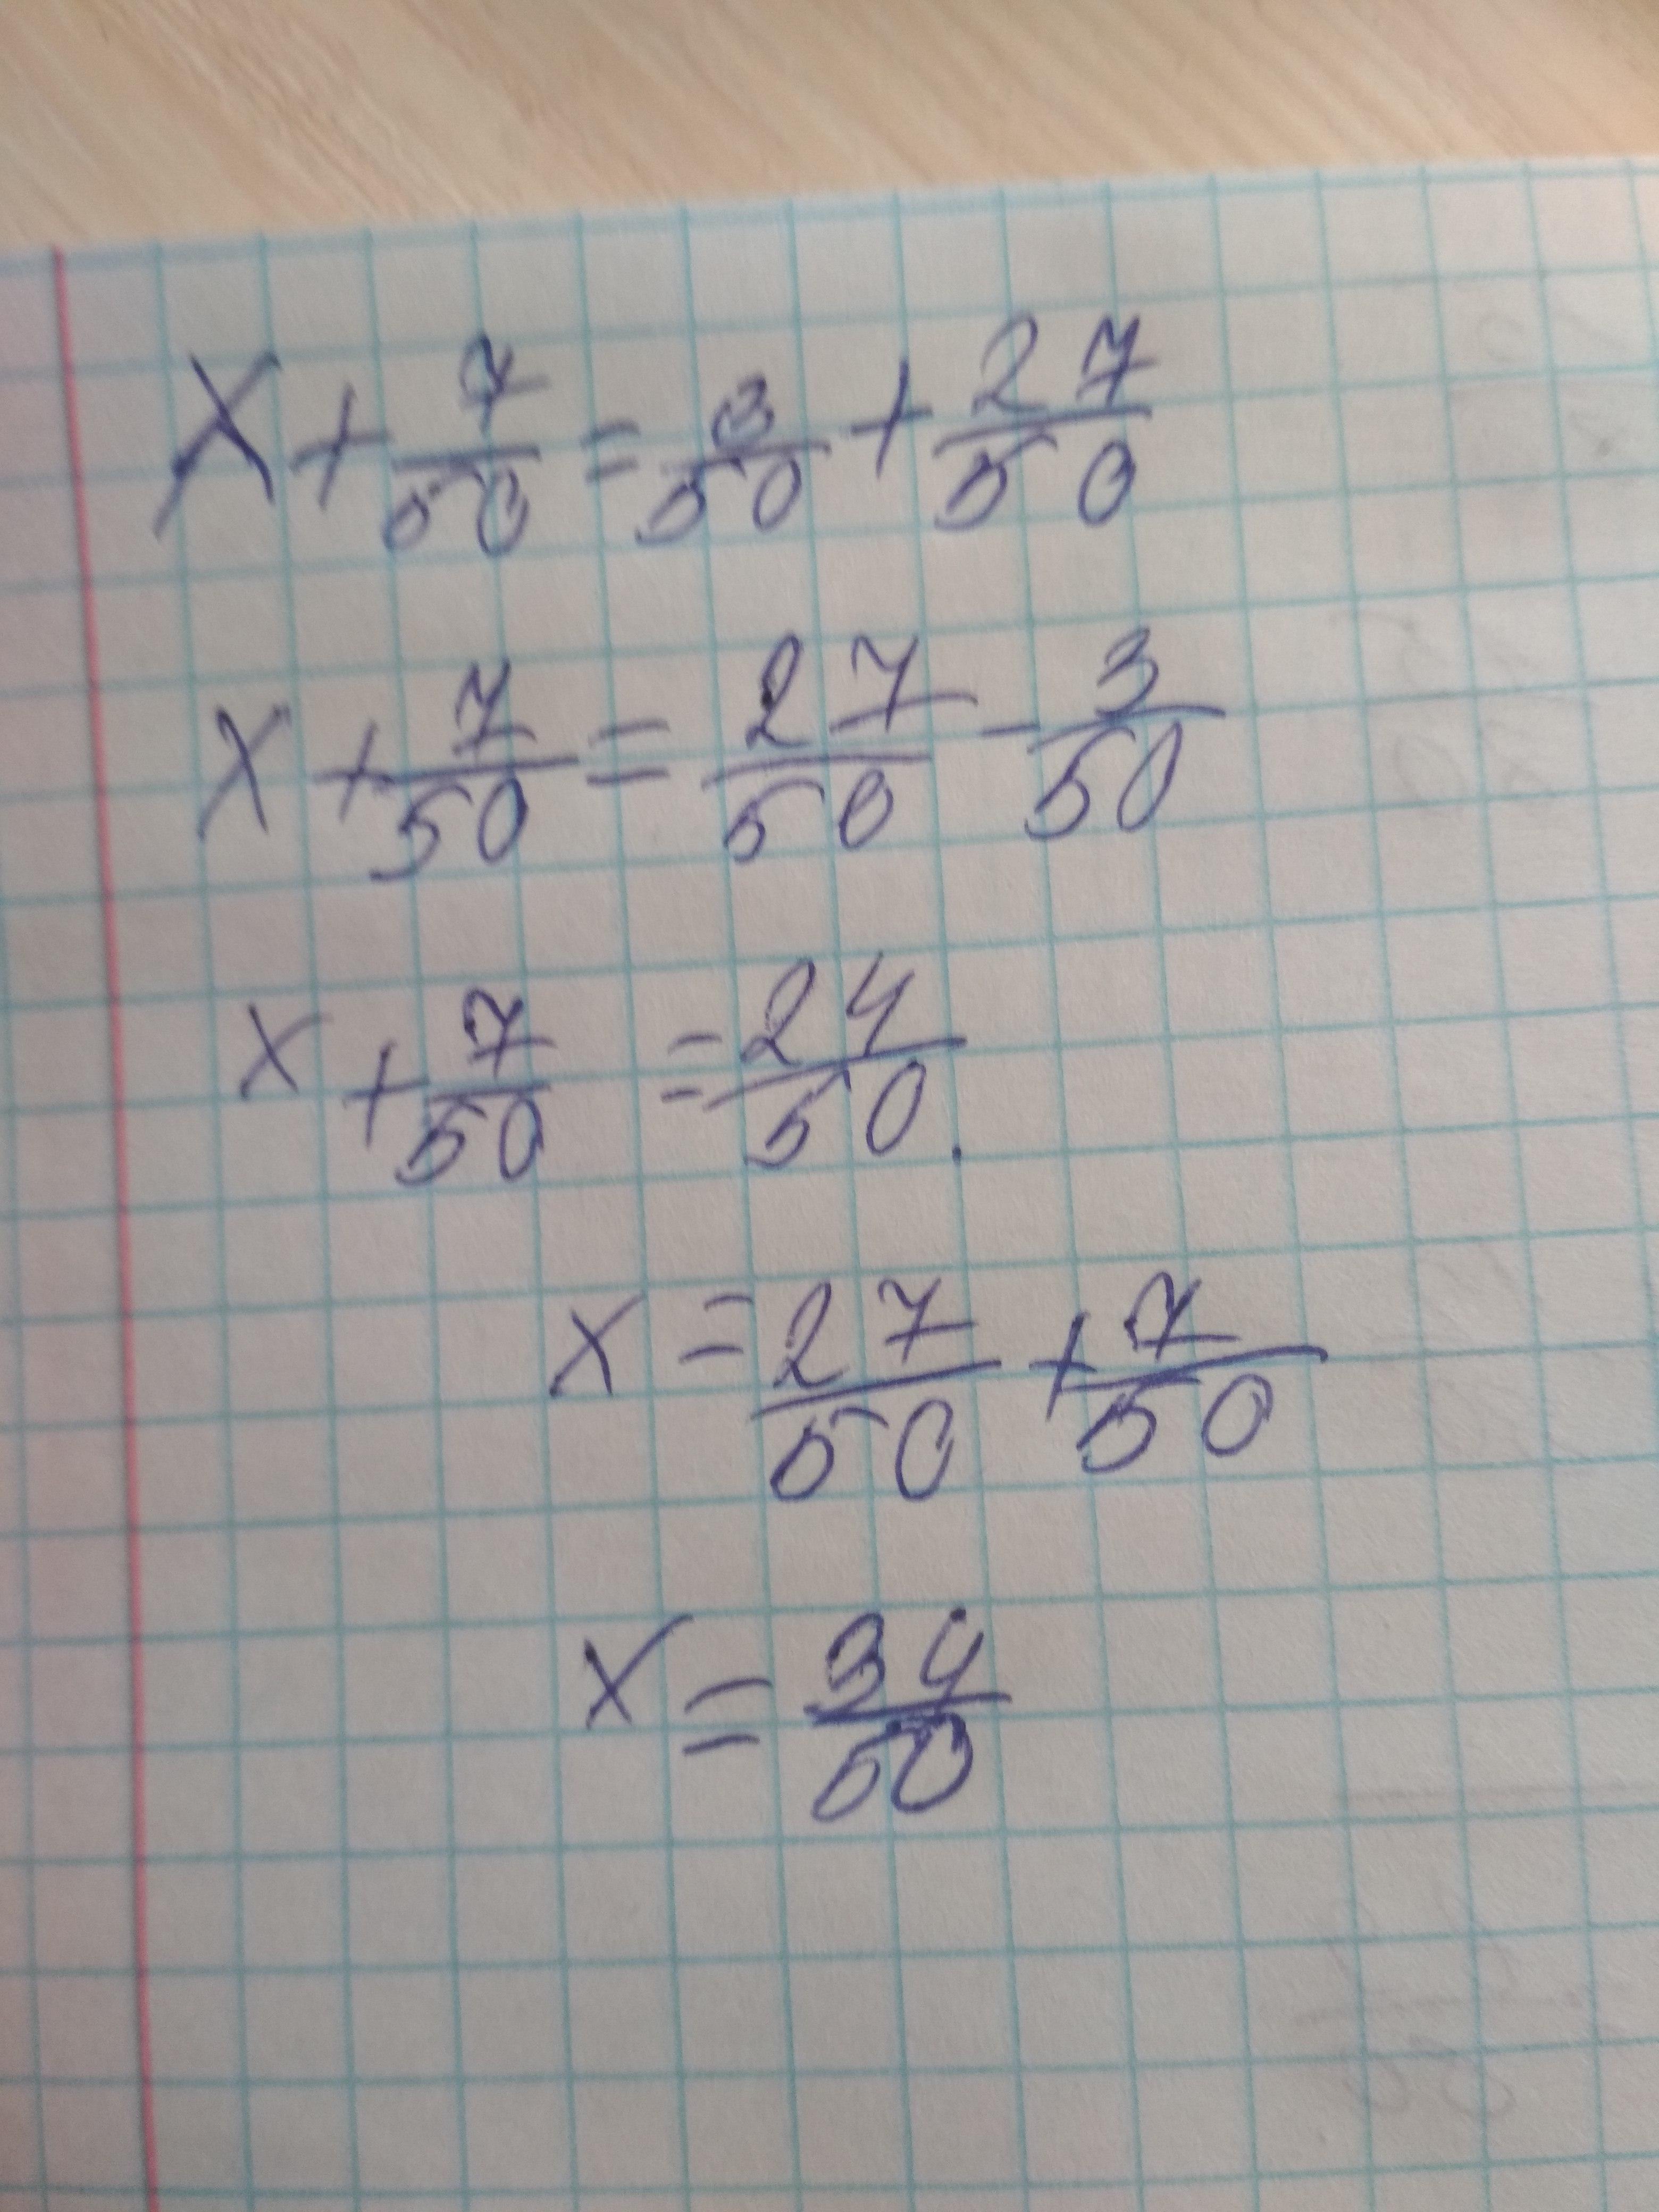 x + 7/50 = 3/50 + 27/50
x + 7/50 = 27/50 - 3/50
x + 7/50 = 24/50.
x = 27/50 + 7/50
x = 34/50